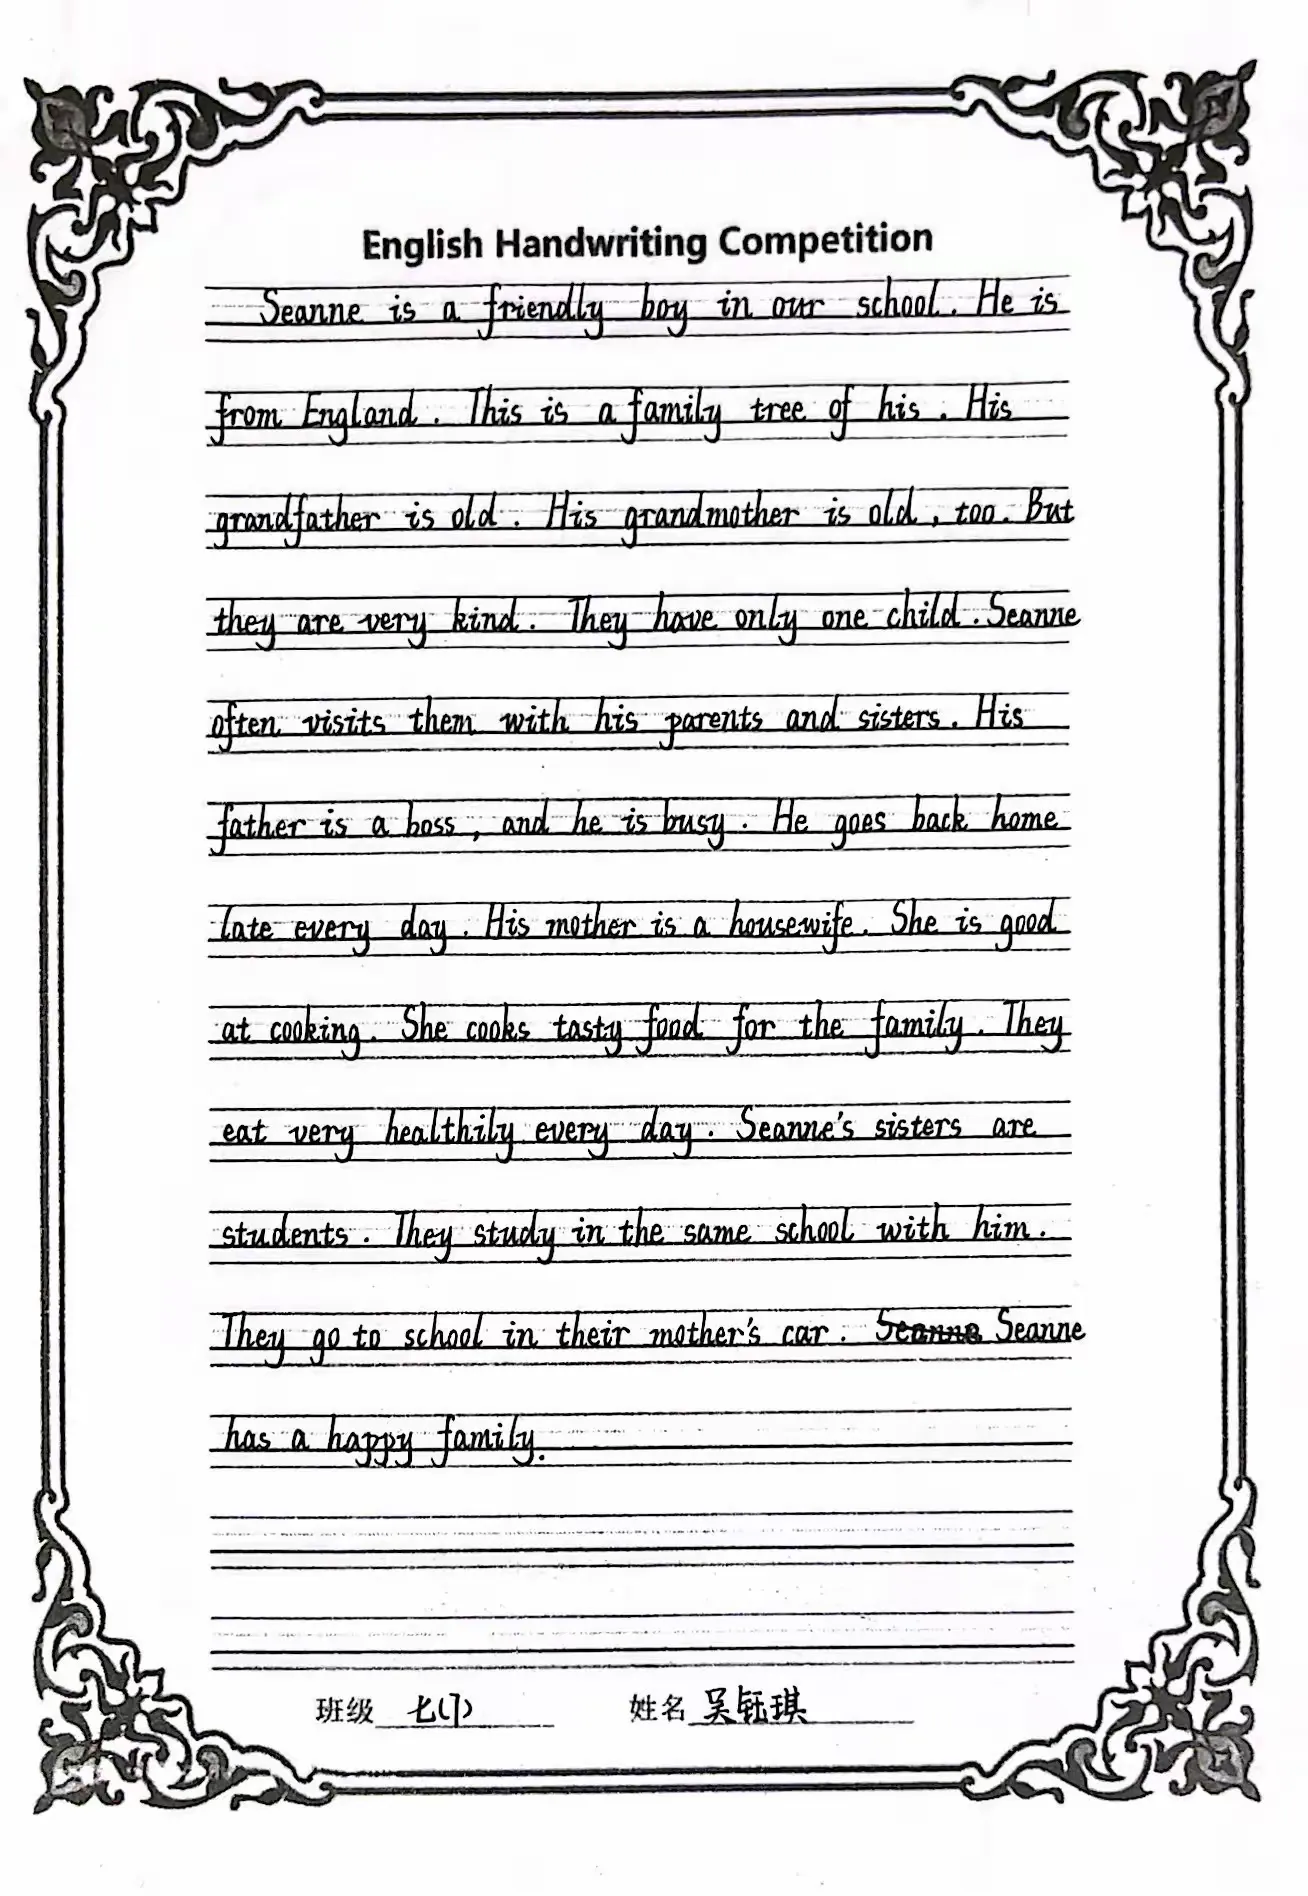 English Handwriting Competition
Seanne is a friendly boy in our school. He is
from England. This is a family tree of his. His
grandfather is old. His grandmother is old, too. But
they are very kind. They have only one child. Seanne
often visits them with his parents and sisters. His
father is a boss, and he is busy. He goes back home
late every day. His mother is a housewife. She is good
at cooking. She cooks tasty food for the family. They
eat very healthily every day. Seanne's sisters are
students. They study in the same school with him.
They go to school in their mother's car. Seanne Seanne
has a happy family.
班级 七(1) 姓名 吴钰琪